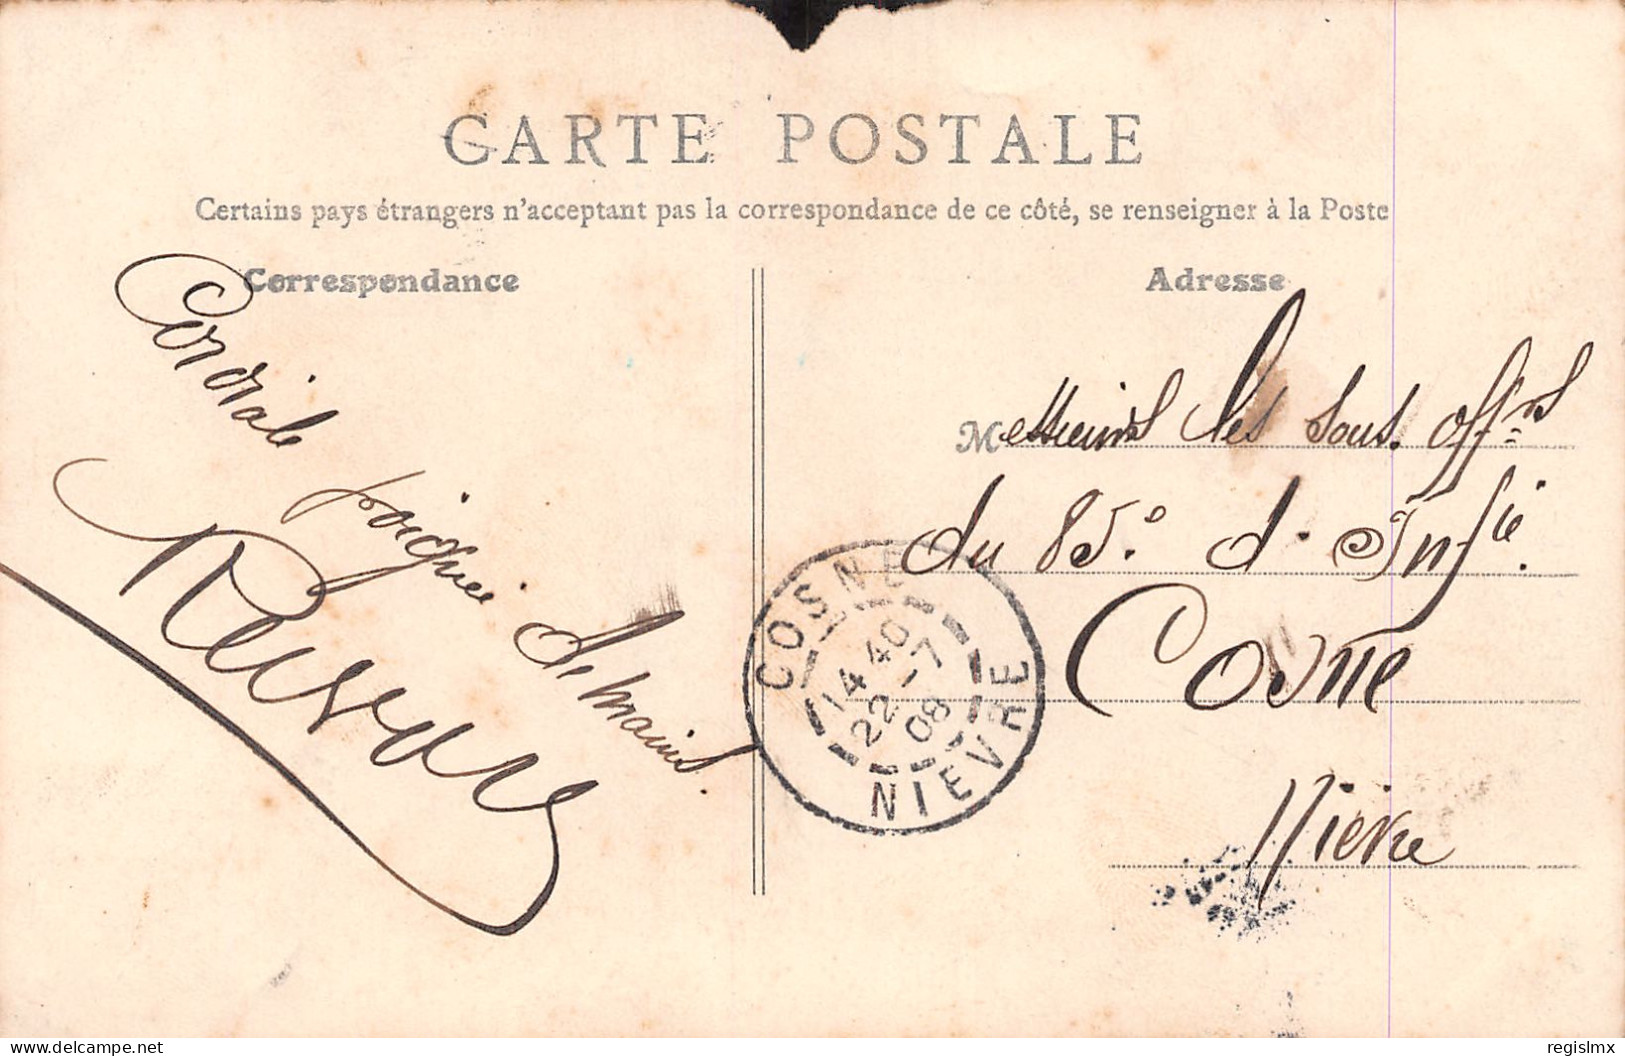 CARTE POSTALE
Certains pays étrangers n'acceptant pas la correspondance de ce côté, se renseigner à la Poste
Correspondance
Cordiale
poignée
de mains.
Adresse
Messieurs les sous. offrs
du 85.e d. Infie.
Cosne
Nièvre
COSNE
14 40
22 - 7
08
NIEVRE
www.delcampe.net
regislmx